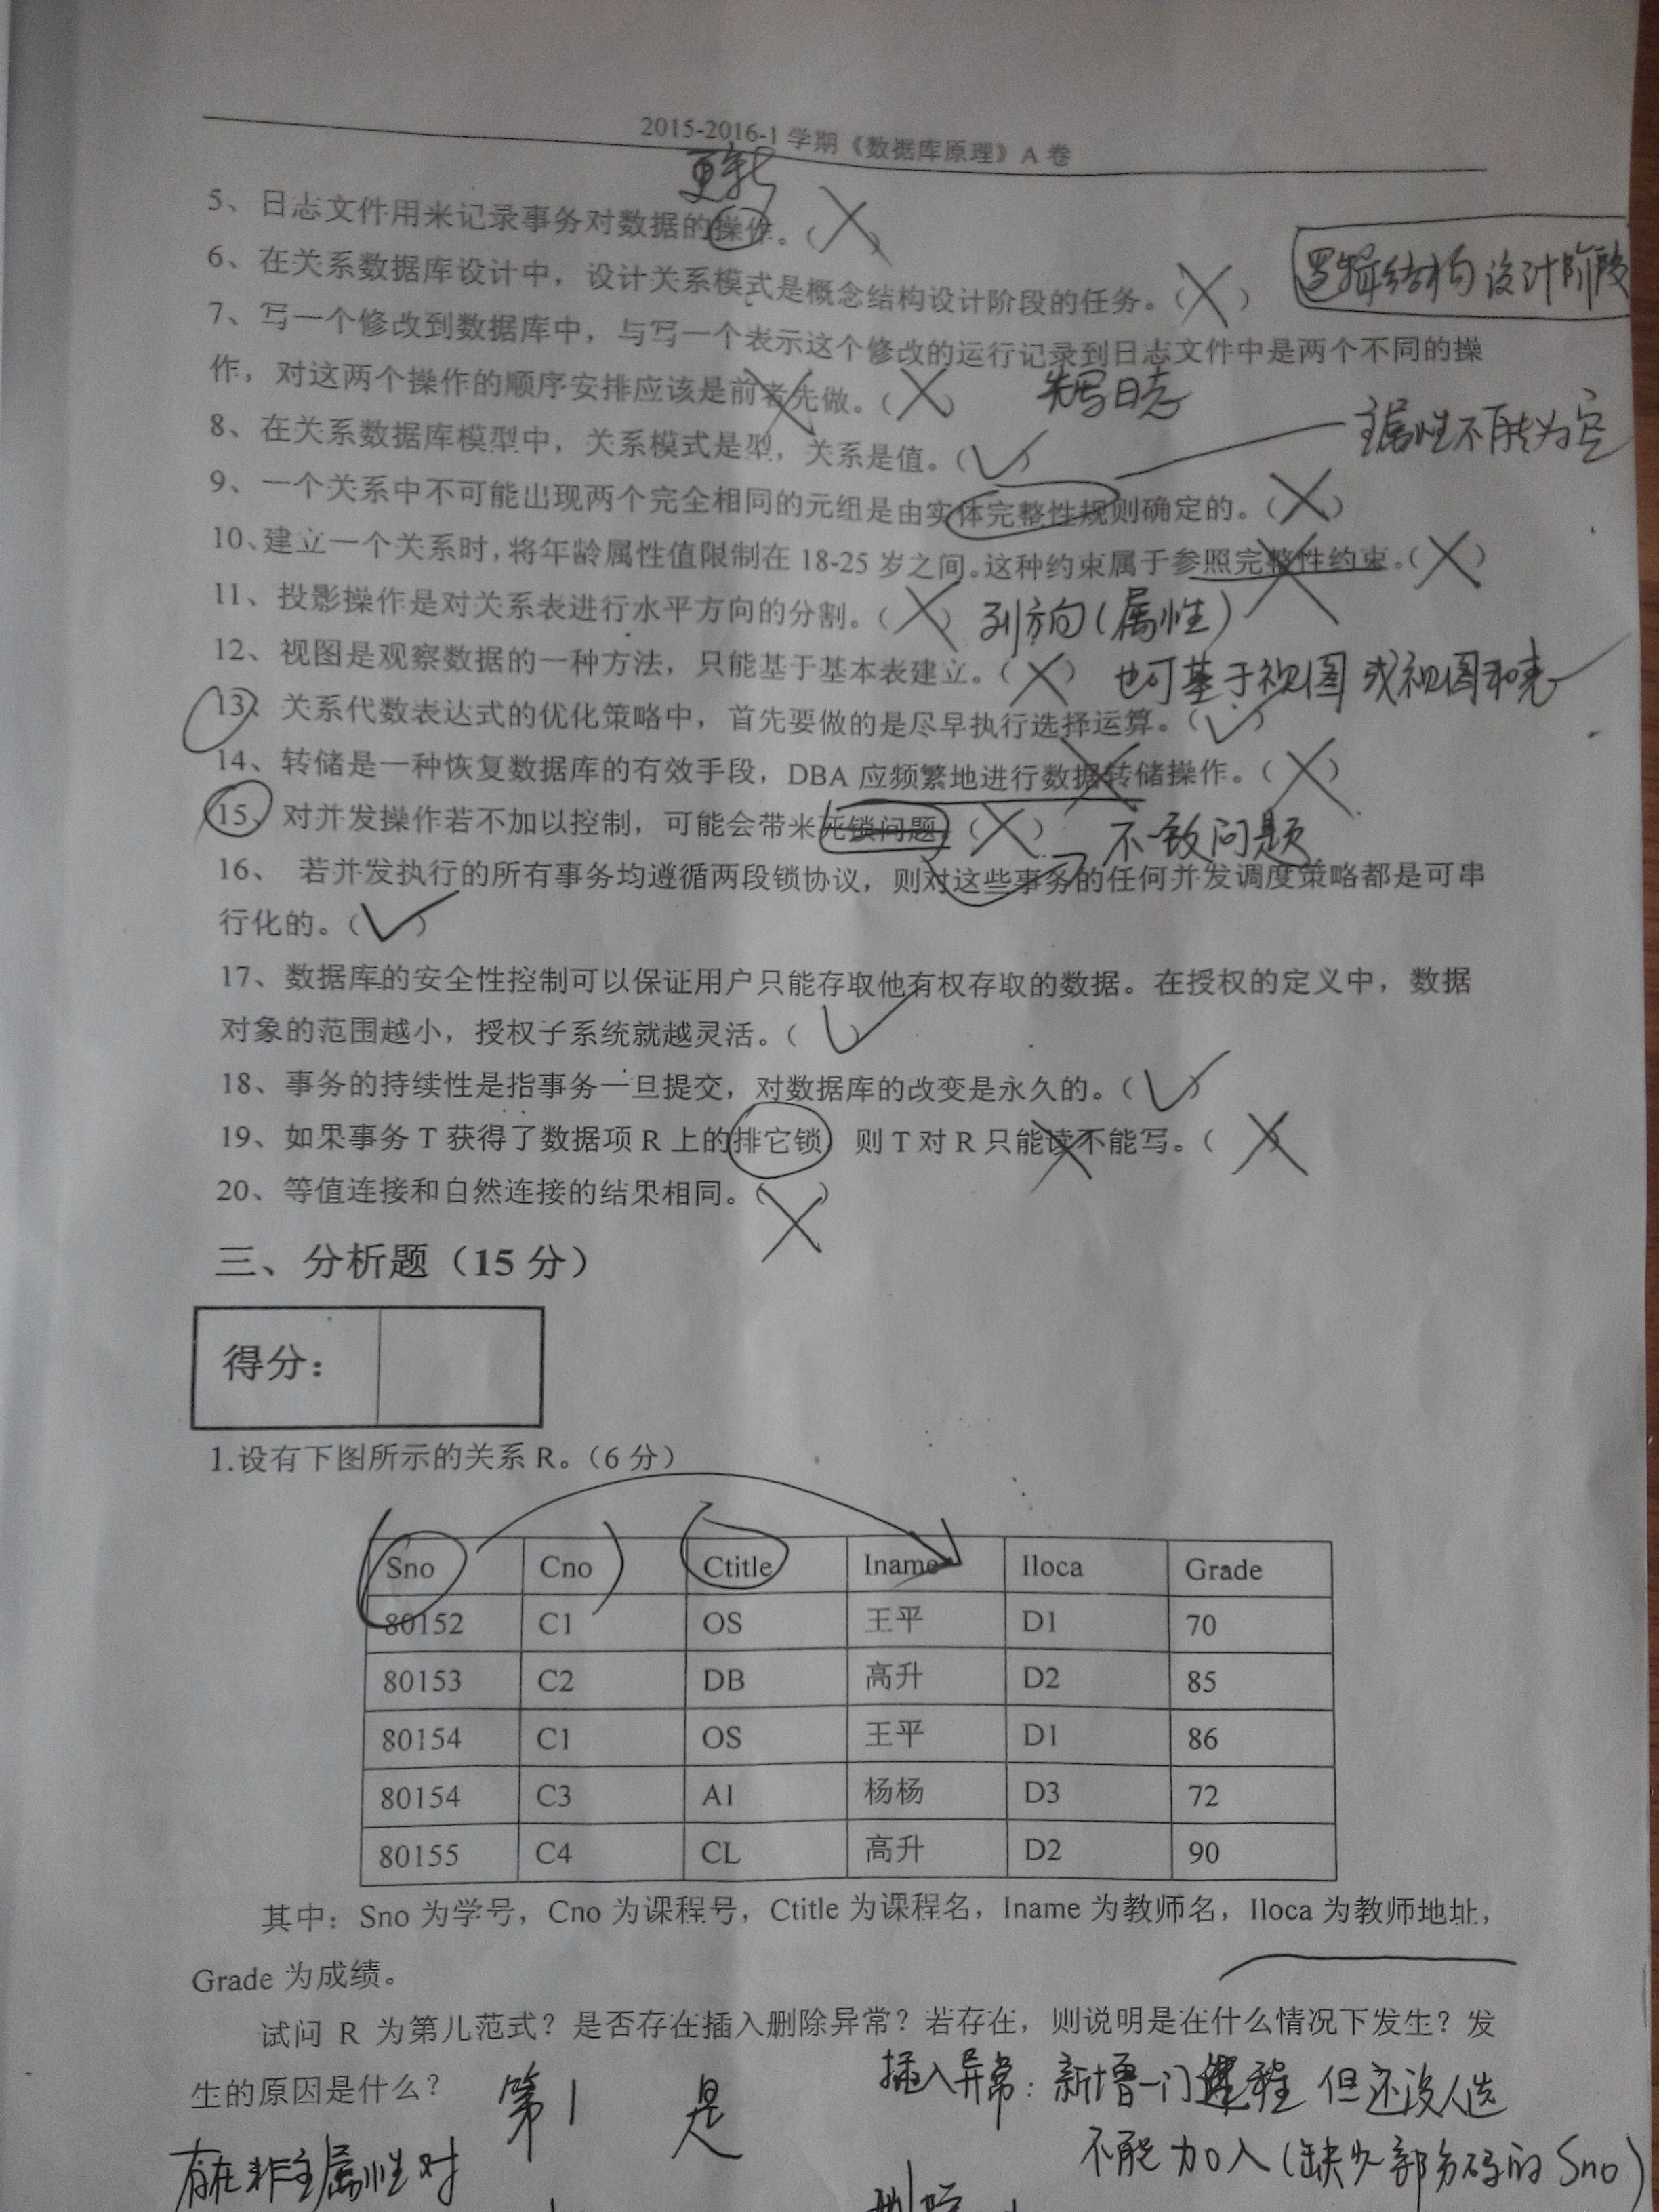 2015-2016-1 学期《数据库原理》A 卷
更新
5、日志文件用来记录事务对数据的操作。(X)
6、在关系数据库设计中，设计关系模式是概念结构设计阶段的任务。(X) 逻辑结构设计阶段
7、写一个修改到数据库中，与写一个表示这个修改的运行记录到日志文件中是两个不同的操
作，对这两个操作的顺序安排应该是前者先做。(X) 先写日志
8、在关系数据库模型中，关系模式是型，关系是值。(✓) 主属性不能为空
9、一个关系中不可能出现两个完全相同的元组是由实体完整性规则确定的。(X)
10、建立一个关系时,将年龄属性值限制在 18-25 岁之间。这种约束属于参照完整性约束。(X)
11、投影操作是对关系表进行水平方向的分割。(X) 列方向(属性)
12、视图是观察数据的一种方法，只能基于基本表建立。(X) 也可基于视图 或视图和表
13、关系代数表达式的优化策略中，首先要做的是尽早执行选择运算。(✓)
14、转储是一种恢复数据库的有效手段，DBA 应频繁地进行数据转储操作。(X)
15、对并发操作若不加以控制，可能会带来死锁问题。(X) 不一致问题
16、 若并发执行的所有事务均遵循两段锁协议，则对这些事务的任何并发调度策略都是可串
行化的。(✓)
17、数据库的安全性控制可以保证用户只能存取他有权存取的数据。在授权的定义中，数据
对象的范围越小，授权子系统就越灵活。(✓)
18、事务的持续性是指事务一旦提交，对数据库的改变是永久的。(✓)
19、如果事务 T 获得了数据项 R 上的排它锁，则 T 对 R 只能读不能写。(X)
20、等值连接和自然连接的结果相同。(X)
三、分析题（15 分）
得分：
1.设有下图所示的关系 R。（6 分）
Sno Cno Ctitle Iname Iloca Grade
80152 C1 OS 王平 D1 70
80153 C2 DB 高升 D2 85
80154 C1 OS 王平 D1 86
80154 C3 AI 杨杨 D3 72
80155 C4 CL 高升 D2 90
其中：Sno 为学号，Cno 为课程号，Ctitle 为课程名，Iname 为教师名，Iloca 为教师地址，
Grade 为成绩。
试问 R 为第几范式？是否存在插入删除异常？若存在，则说明是在什么情况下发生？发
生的原因是什么？ 第1 是 插入异常：新增一门课程 但还没人选
存在非主属性对 不能加入(缺少部分码的 Sno)
删除